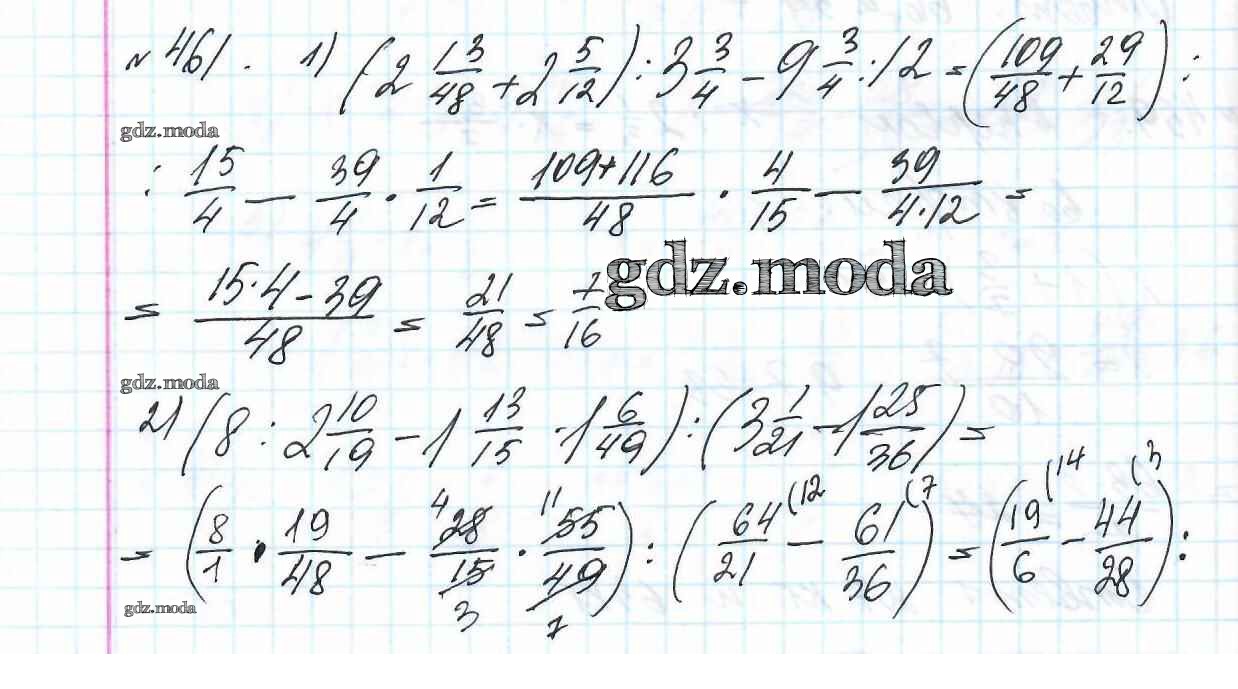 №461. 1) (2 13/48 + 2 5/12) : 3 3/4 - 9 3/4 : 12 = (109/48 + 29/12) :
gdz.moda
: 15/4 - 39/4 · 1/12 = (109+116)/48 · 4/15 - 39/(4·12) =
gdz.moda
= (15·4-39)/48 = 21/48 = 7/16
gdz.moda
2) (8 : 2 10/19 - 1 13/15 · 1 6/49) : (3 1/21 - 1 25/36) =
= (8/1 · 19/48 - 4 28/15 3 · 11 55/49 7) : (64/21 (12 - 61/36 (7) = (19/6 (14 - 44/28 (3) :
gdz.moda